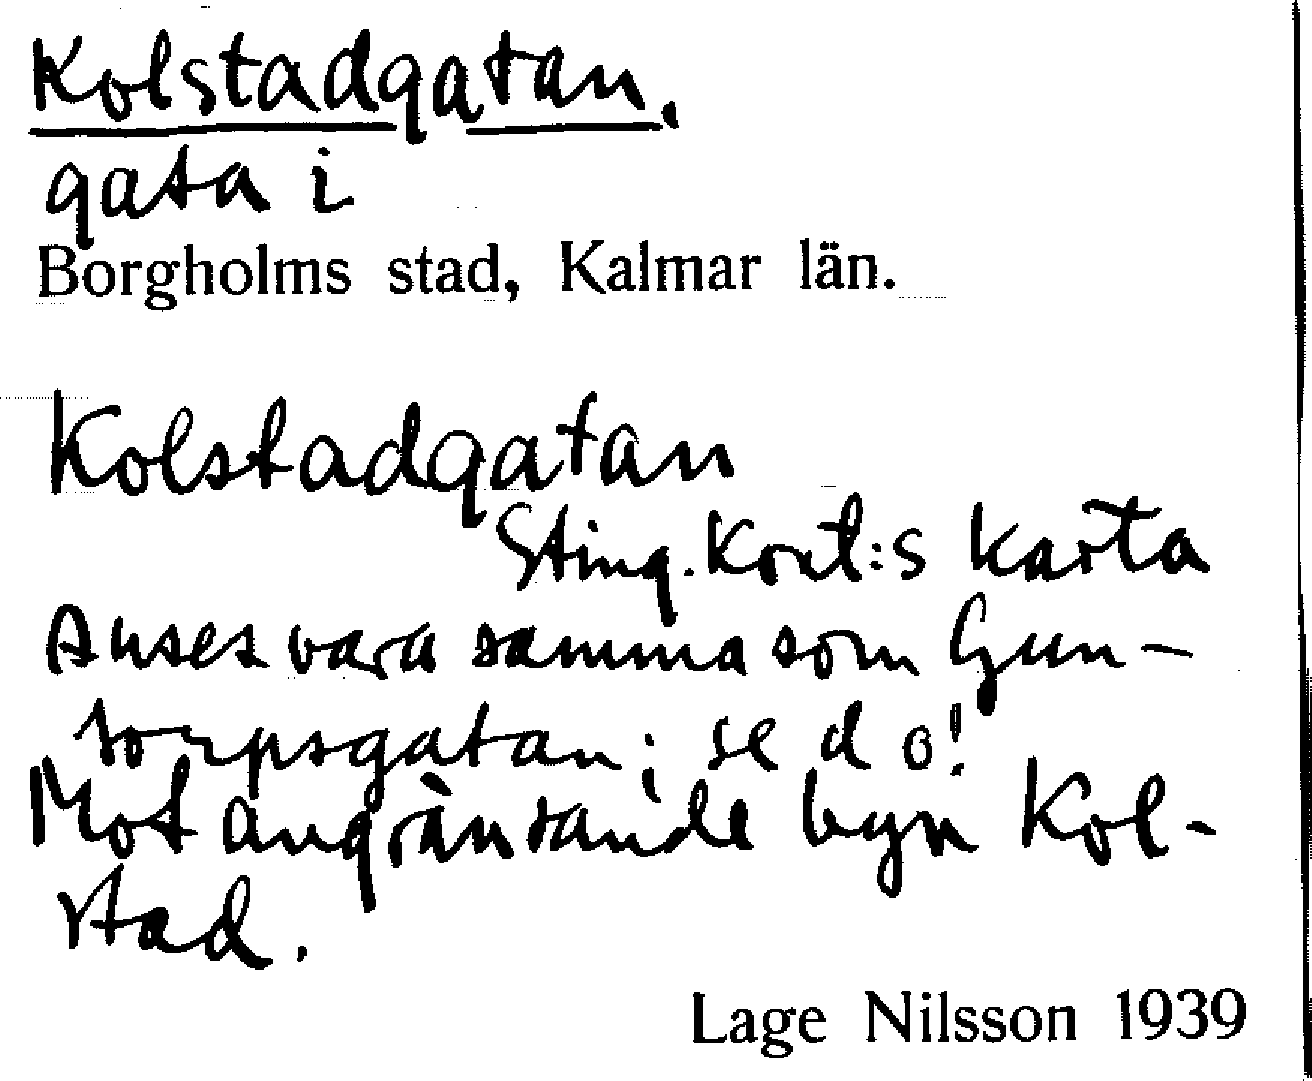 Kolstadgatan.
gata i
Borgholms stad, Kalmar län.
Kolstadgatan
Sting. Kont:s karta
Anses vara samma som Gun-
torpsgatan; se d o!
Mot angränsande byn Kol-
stad.
Lage Nilsson 1939